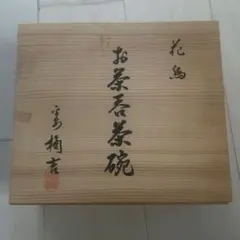 花鳥
お茶呑茶碗
橘吉